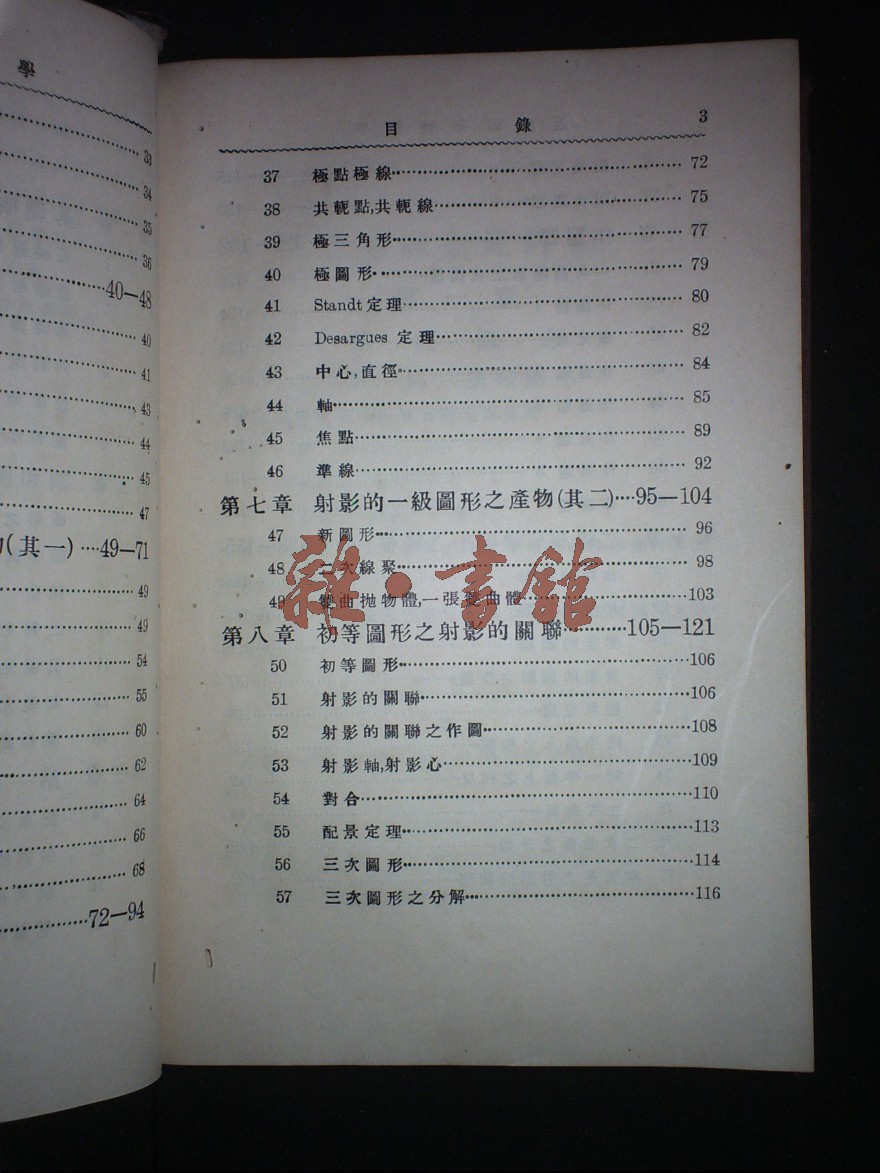 學
33
34
35
36
40—48
40
41
43
44
45
47
(其一)····49—71
49
49
54
55
60
62
64
66
68
72—94
目錄 3
37 極點極線 72
38 共軛點,共軛線 75
39 極三角形 77
40 極圖形 79
41 Standt定理 80
42 Desargues 定理 82
43 中心,直徑 84
44 軸 85
45 焦點 89
46 準線 92
第七章 射影的一級圖形之產物(其二)····95—104
47 新圖形 96
48 二次線聚 98
49 雙曲拋物體,一張雙曲體 103
第八章 初等圖形之射影的關聯 105—121
50 初等圖形 106
51 射影的關聯 106
52 射影的關聯之作圖 108
53 射影軸,射影心 109
54 對合 110
55 配景定理 113
56 三次圖形 114
57 三次圖形之分解 116
雜·書館